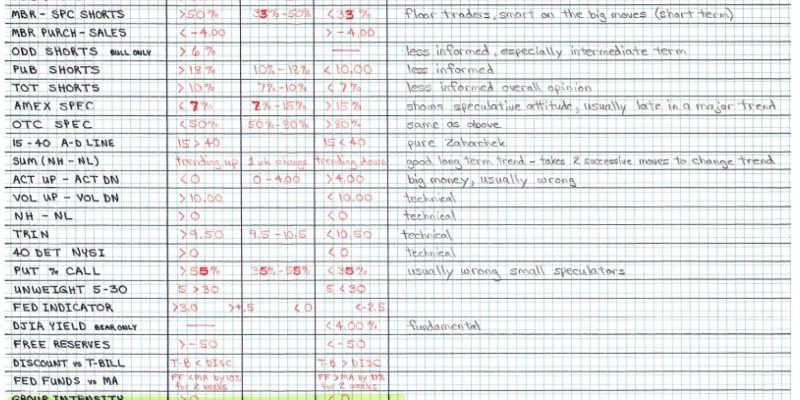 MBR - SPC SHORTS >50% 35%-50% <35% floor traders, smart on the big moves (short term)
MBR PURCH - SALES < -4.00 > -4.00
ODD SHORTS BULL ONLY >6% — less informed, especially intermediate term
PUB SHORTS >18% 10%-18% <10.00 less informed
TOT SHORTS >10% 7%-10% <7% less informed overall opinion
AMEX SPEC <7% 7%-15% >15% shows speculative attitude, usually late in a major trend
OTC SPEC <50% 50%-80% >80% same as above
15-40 A-D LINE 15>40 15<40 pure Zahorchek
SUM (NH - NL) trending up 1 wk change trending down good long term trend - takes 2 successive moves to change trend
ACT UP - ACT DN <0 0-4.00 >4.00 big money, usually wrong
VOL UP - VOL DN >10.00 <10.00 technical
NH - NL >0 <0 technical
TRIN >9.50 9.5-10.5 <10.50 technical
40 DET NYSI >0 <0 technical
PUT % CALL >55% 35%-55% <35% usually wrong small speculators
UNWEIGHT 5-30 5>30 5<30
FED INDICATOR >3.0 >4.5 <0 <-2.5
DJIA YIELD BEAR ONLY — <4.00% fundamental
FREE RESERVES >-50 <-50
DISCOUNT vs T-BILL T-B < DISC T-B > DISC
FED FUNDS vs MA FF<MA by 10% for 2 weeks FF>MA by 10% for 2 weeks
GROUP INTENSITY >0 <0